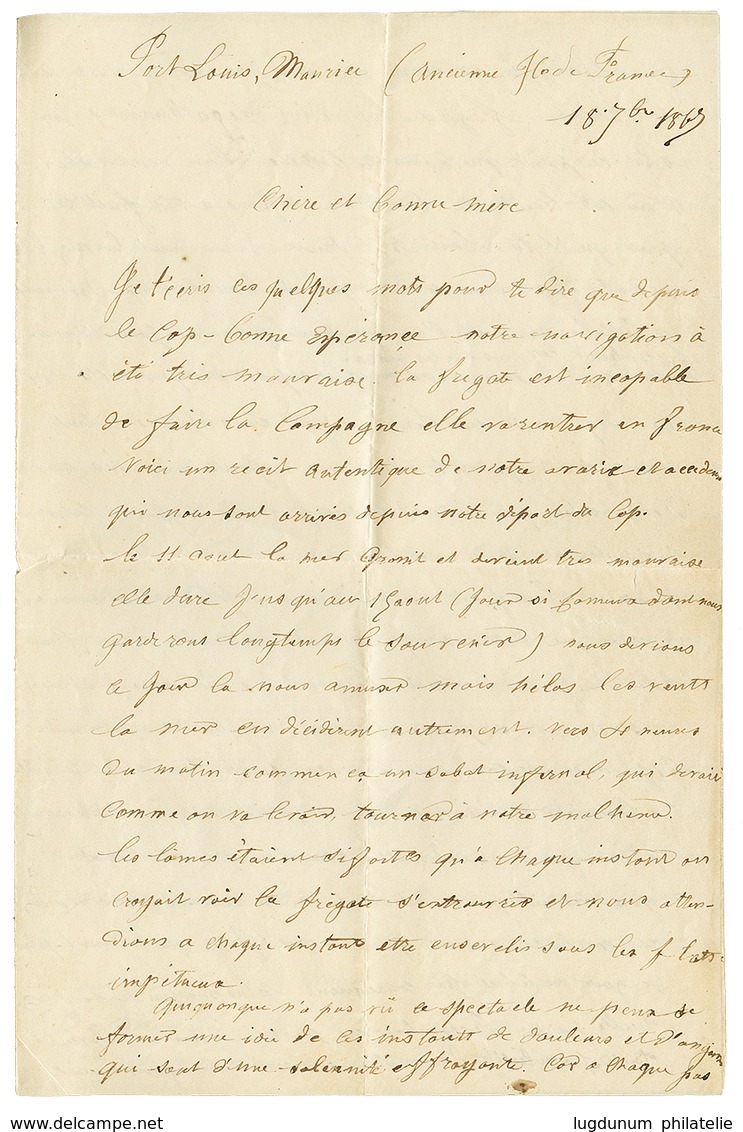 Port Louis, Maurice (ancienne Ile de France)
18 7bre 1867
Chere et Bonne mère
Je t'écris ces quelques mots pour te dire que depuis
le Cap-Bonne Espérance notre navigation à
été très mauvaise. la frégate est incapable
de faire la Campagne elle va rentrer en France
Voici un récit autentique de notre avarie et accidents
qui nous sont arrivés depuis notre départ du Cap.
le 11 aout la mer Grossit et devient très mauvaise
elle dure jusqu'au 15 aout (Jour si fameux dont nous
garderons longtemps le souvenir) nous devions
ce jour la nous amuser mais hélas les vents
la mer en décidèrent autrement. vers 4 heures
du matin commença un sabat infernal, qui devait
comme on va le voir, tourner à notre malheur.
les lames étaient si fortes qu'a chaque instant on
croyait voir la frégate s'entrouvrir et nous atten-
dions a chaque instant etre ensevelis sous les flots
impétueux.
Quiquonque n'a pas vü ce spectacle ne peux se
former une idée de ces instants de douleurs et d'angoisses
qui sont d'une solennité effroyante. Car a chaque pas
lugdunum philatelie